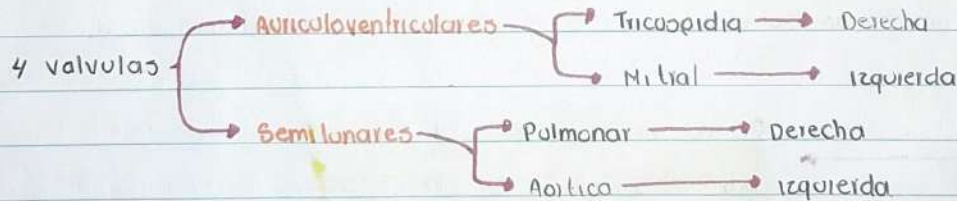 Auriculoventriculares Tricuspidia Derecha
4 valvulas
Mitral Izquierda
Semilunares Pulmonar Derecha
Aortica Izquierda